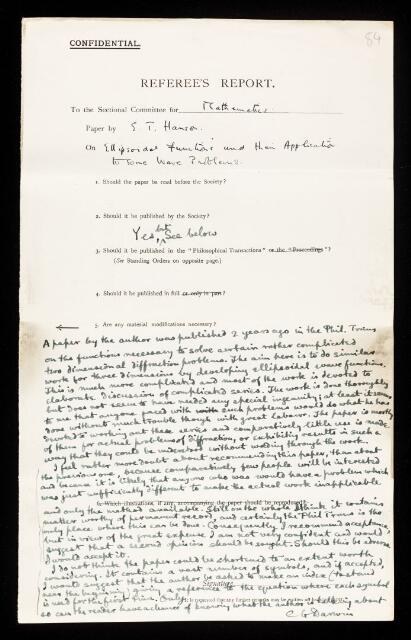 84
CONFIDENTIAL.
REFEREE'S REPORT.
To the Sectional Committee for Mathematics
Paper by E. T. Hanson.
On Ellipsoidal functions and their Application
to some Wave Problems.
1. Should the paper be read before the Society?
2. Should it be published by the Society?
Yes, but see below
3. Should it be published in the "Philosophical Transactions" or the "Proceedings"?
(See Standing Orders on opposite page.)
4. Should it be published in full or only in part?
5. Are any material modifications necessary?
A paper by the author was published 2 years ago in the Phil. Trans
on the functions necessary to solve certain rather complicated
two dimensional diffraction problems. The aim here is to do similar
work for three dimensions by developing ellipsoidal wave functions.
This is much more complicated and most of the work is devoted to
elaborate discussion of complicated series. The work is done thoroughly
but does not seem to have needed any special ingenuity; at least it seems
to me that anyone faced with such problems would do what he has
done without much trouble though with great labour. The paper is mostly
devoted to working out these series and comparatively little use is made
of them for actual problems of diffraction, or exhibiting results in such a
way that they could be understood without wading through the work.
I feel rather more doubt about recommending this paper, than about
the previous one, because comparatively few people will be interested
and because it is likely that anyone who was would have a problem which
was just sufficiently different to make the actual work inapplicable
6. Which illustrations, if any, accompanying the paper should be reproduced?
and only the method available. Still on the whole I think it contains
matter worthy of permanent record, and certainly the Phil Trans is the
only place where this can be done. Consequently I recommend acceptance
but in view of the great expense I am not very confident and would
suggest that a second opinion should be sought. Should this be adverse
I would accept it.
I do not think the paper could be shortened to an extent worth
considering. It contains a vast number of symbols, and if accepted,
I would suggest that the author be asked to make an index (to stand
near the beginning) giving a reference to the equation where each symbol
Signature
is used for the first time. Only
so can the reader have a chance of knowing what the author is talking about
C G Darwin